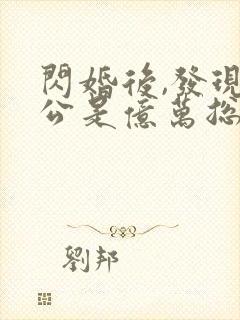 閃婚後,發現
公是億萬總
劉邦